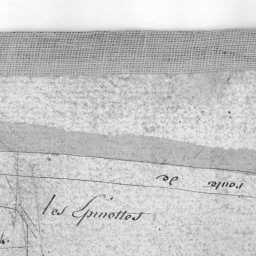 route de
les Epinottes